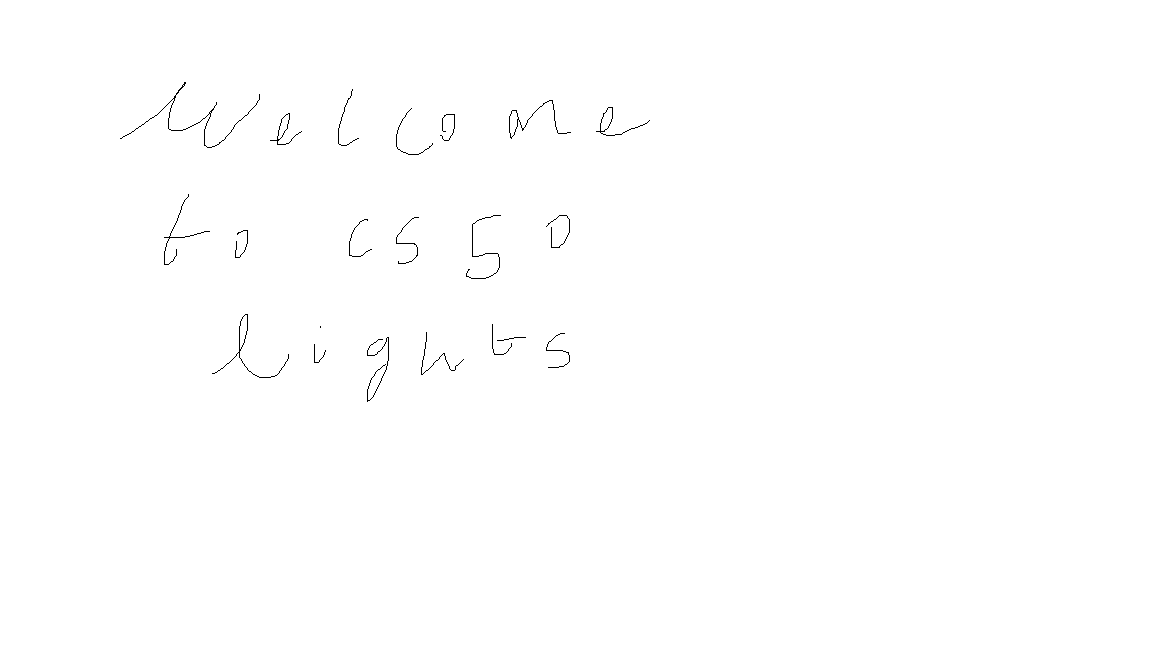 Welcome
to cs50
lights